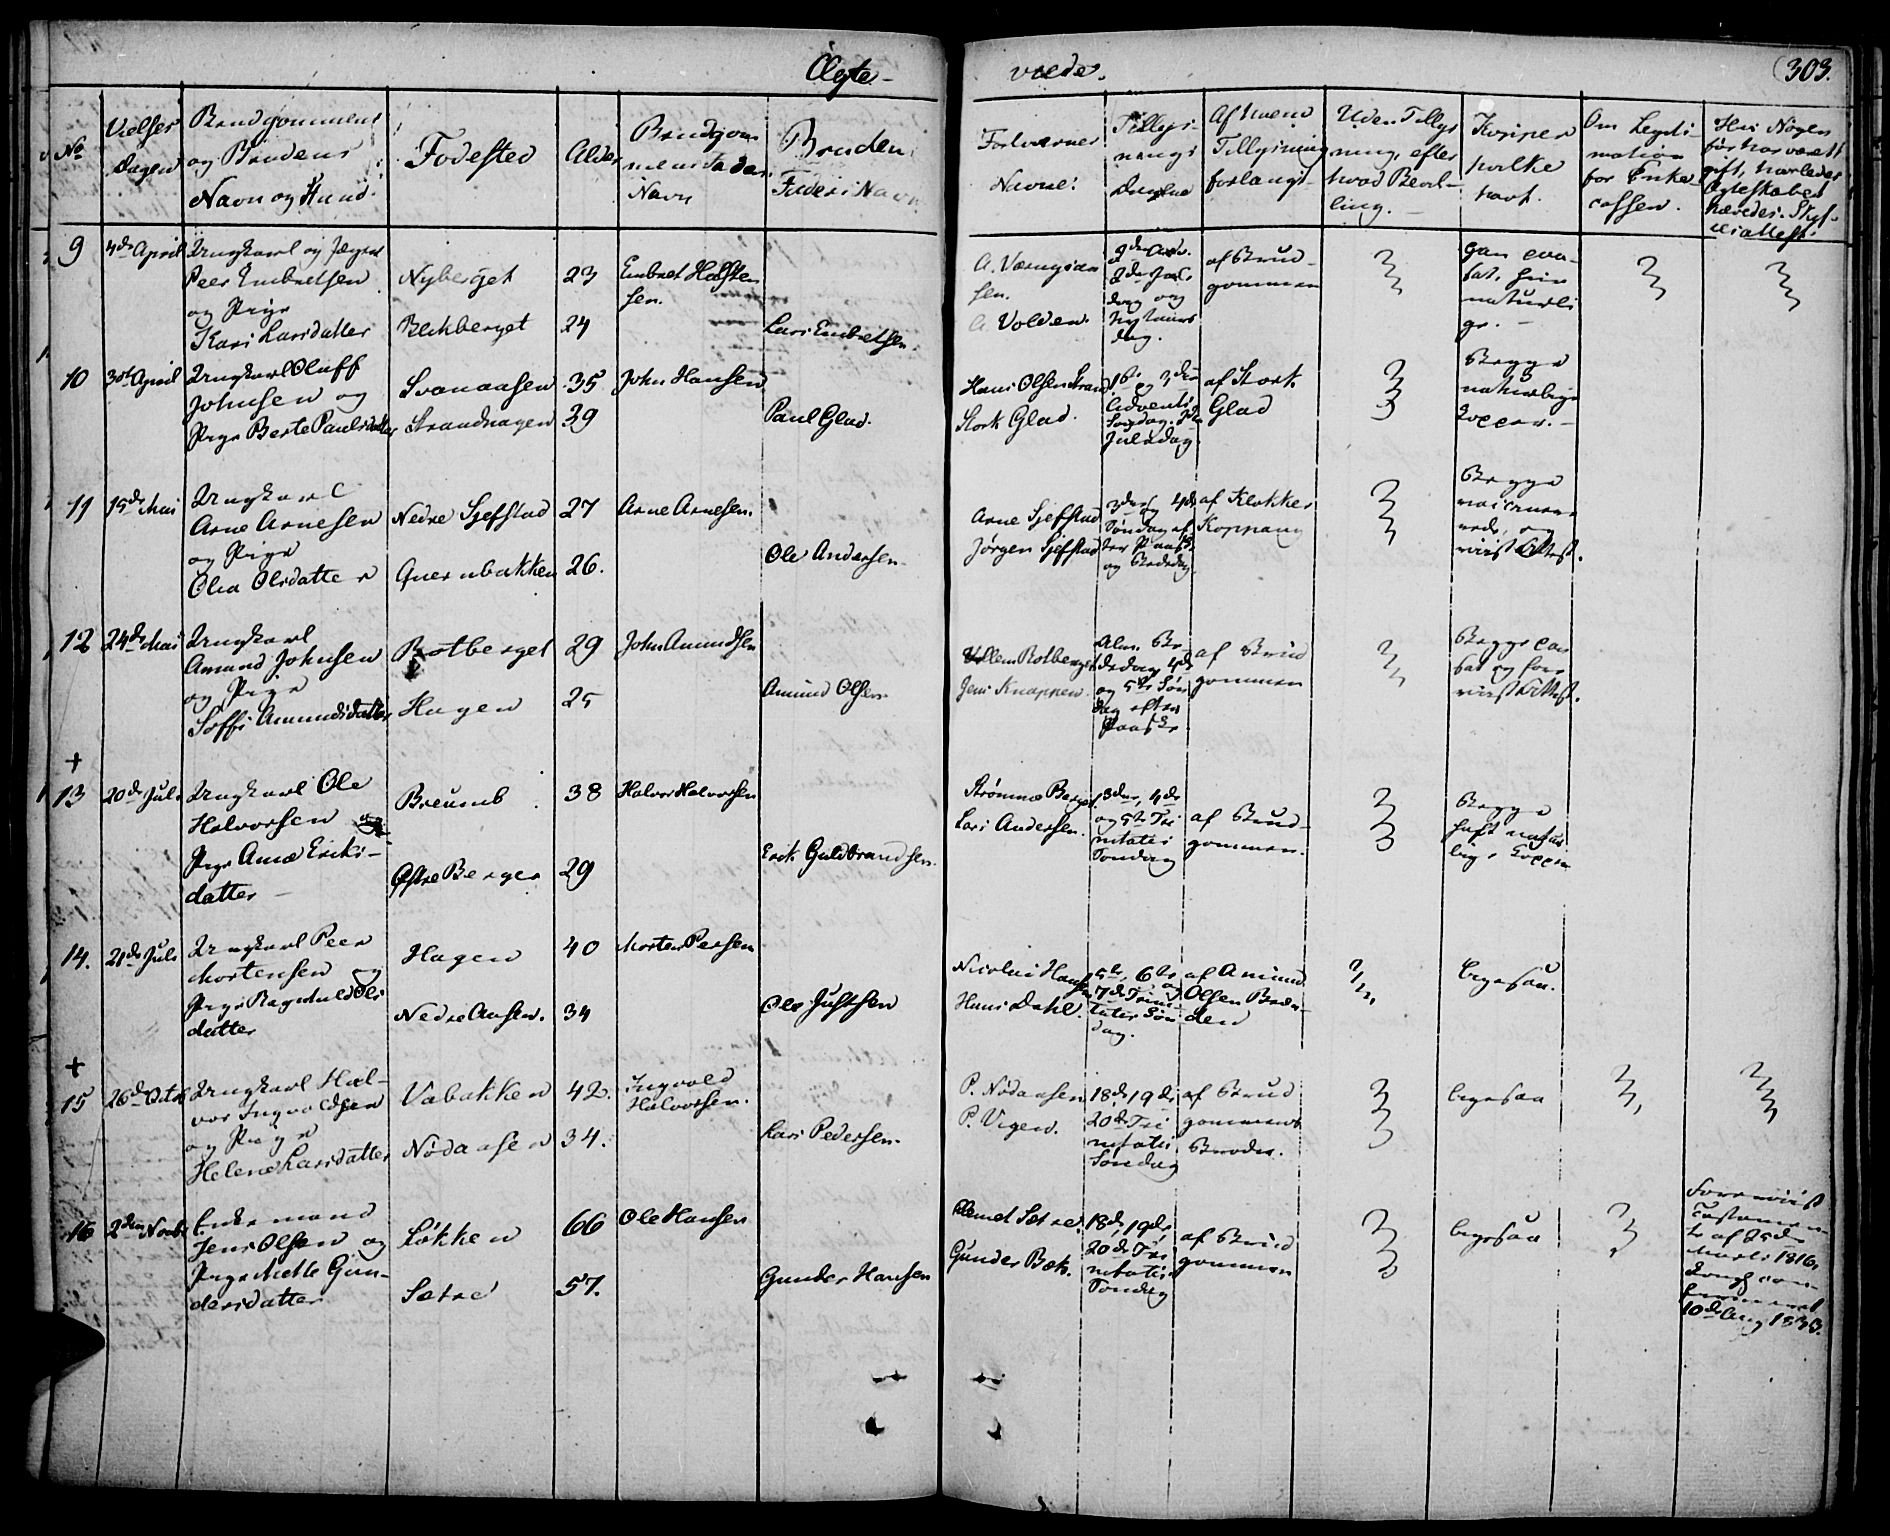 Ægte-
viede.
303.
No
Vielses
Dagen
Brudgommens
og Brudens
Navn og Stand.
Fødested
Alder
Brudgom
mens Faders
Navn
Brudens
Faders Navn
Forlovernes
Navne.
Tillys-
nings
Dagene
Af hvem
Tillysning
forlangt.
Uden Tillys
ning, efter
hvad Bevil-
ling.
Kopper
hvilke
havt.
Om Legiti-
mation
for Enke-
cassen.
Hvis Nogen
før har været
gift, hvorledes
Ægteskabet
hævedes. Skif-
teattest.
9
4de April
Ungkarl og Jæger
Peer Embretsen
og Pige
Kari Larsdatter
Nyberget
Blekberget
23
24
Embret Halsten
sen.
Lars Embretsen.
A. Værnes
sen.
A Volden.
2den Juле
dag og
Nytaars
dag.
af Brud-
gommen
naturli
ge.
10
30te April
Ungkarl Oluff
Johnsen og
Pige Berte Paulsdatter
Svenaasen
Strandhagen
35
39
John Hansen
Paul Glad.
Hans Olsen Strand
Stork Glad.
1ste og 3die
Advents
Søndag. 2den
Juledag
af Stork
Glad
Begge
naturlige
Kopper.
11
15de Mai
Ungkarl
Arne Arnesen
og Pige
Olea Olsdatter
Nedre Sjefstad
Quernbakken
27
26.
Arne Arnesen.
Ole Andersen.
Arne Sjefstad
Jørgen Sjefstad
3die og 4de
Søndag ef
ter Paaske
og Bededag
af Klokker
Koppang
Begge
vaccine-
rede, og
viist Attest.
12
24de Mai
Ungkarl
Amund Johnsen
og Pige
Soffi Amundsdatter
Rotberget
Hagen
29
25
John Amundsen
Amund Olsen
Willem Rotberget
Jens Knappen.
Alm. Be-
dedag, 4de
og 5te Søn
dag efter
Paaske
af Brud
gommen
Begge vac
sat og fore
viist Attest.
+
13
20de Juli
Ungkarl Ole
Halvorsen og
Pige Anne Eriks-
datter
Breumb
Østre Berger
38
29
Halvor Halvorsen
Erik Guldbrandsen.
Strømme Berget.
Lars Andersen.
3die, 4de
og 5te Tri
nitatis
Søndag
af Brud-
gommen.
Begge
haft natur
lige Kopper
14.
21de Juli
Ungkarl Peer
Mortensen og
Pige Ragnhild Ols
datter
Hagen
Nedre Aasen.
40
34
Morten Persen
Ole Justsen
Nicolai Hansen
Hans Dahl.
5te, 6te
og
7de Trini
tatis Søn
dag.
af Amund
Olsen Bræn-
den
ligesaa.
+
15
26de Octob
Ungkarl Hal-
vor Ingvoldsen
og Pige
Helene Larsdatter
Vabakken
Nødaasen
42.
34.
Ingvold
Halvorsen.
Lars Pedersen.
P. Nødaasen
P. Vigen.
18de, 19de
20de Tri
nitatis
Søndag
af Brud
gommens
Broder.
ligesaa
16
2den Novbr
Enkemand
Jens Olsen og
Pige Mette Gun-
dersdatter
Løkken
Sætre
66
57.
Ole Hansen
Gunder Hansen
Clemet Sætre.
Gunder Bæk.
18de, 19de,
20de Tri
nitatis
Søndag
af Brud
gommen
ligesaa
Foreviist
Testamen-
te af 25de
Marts 1816,
Kongl con-
firmeret
10de Aug 1833.